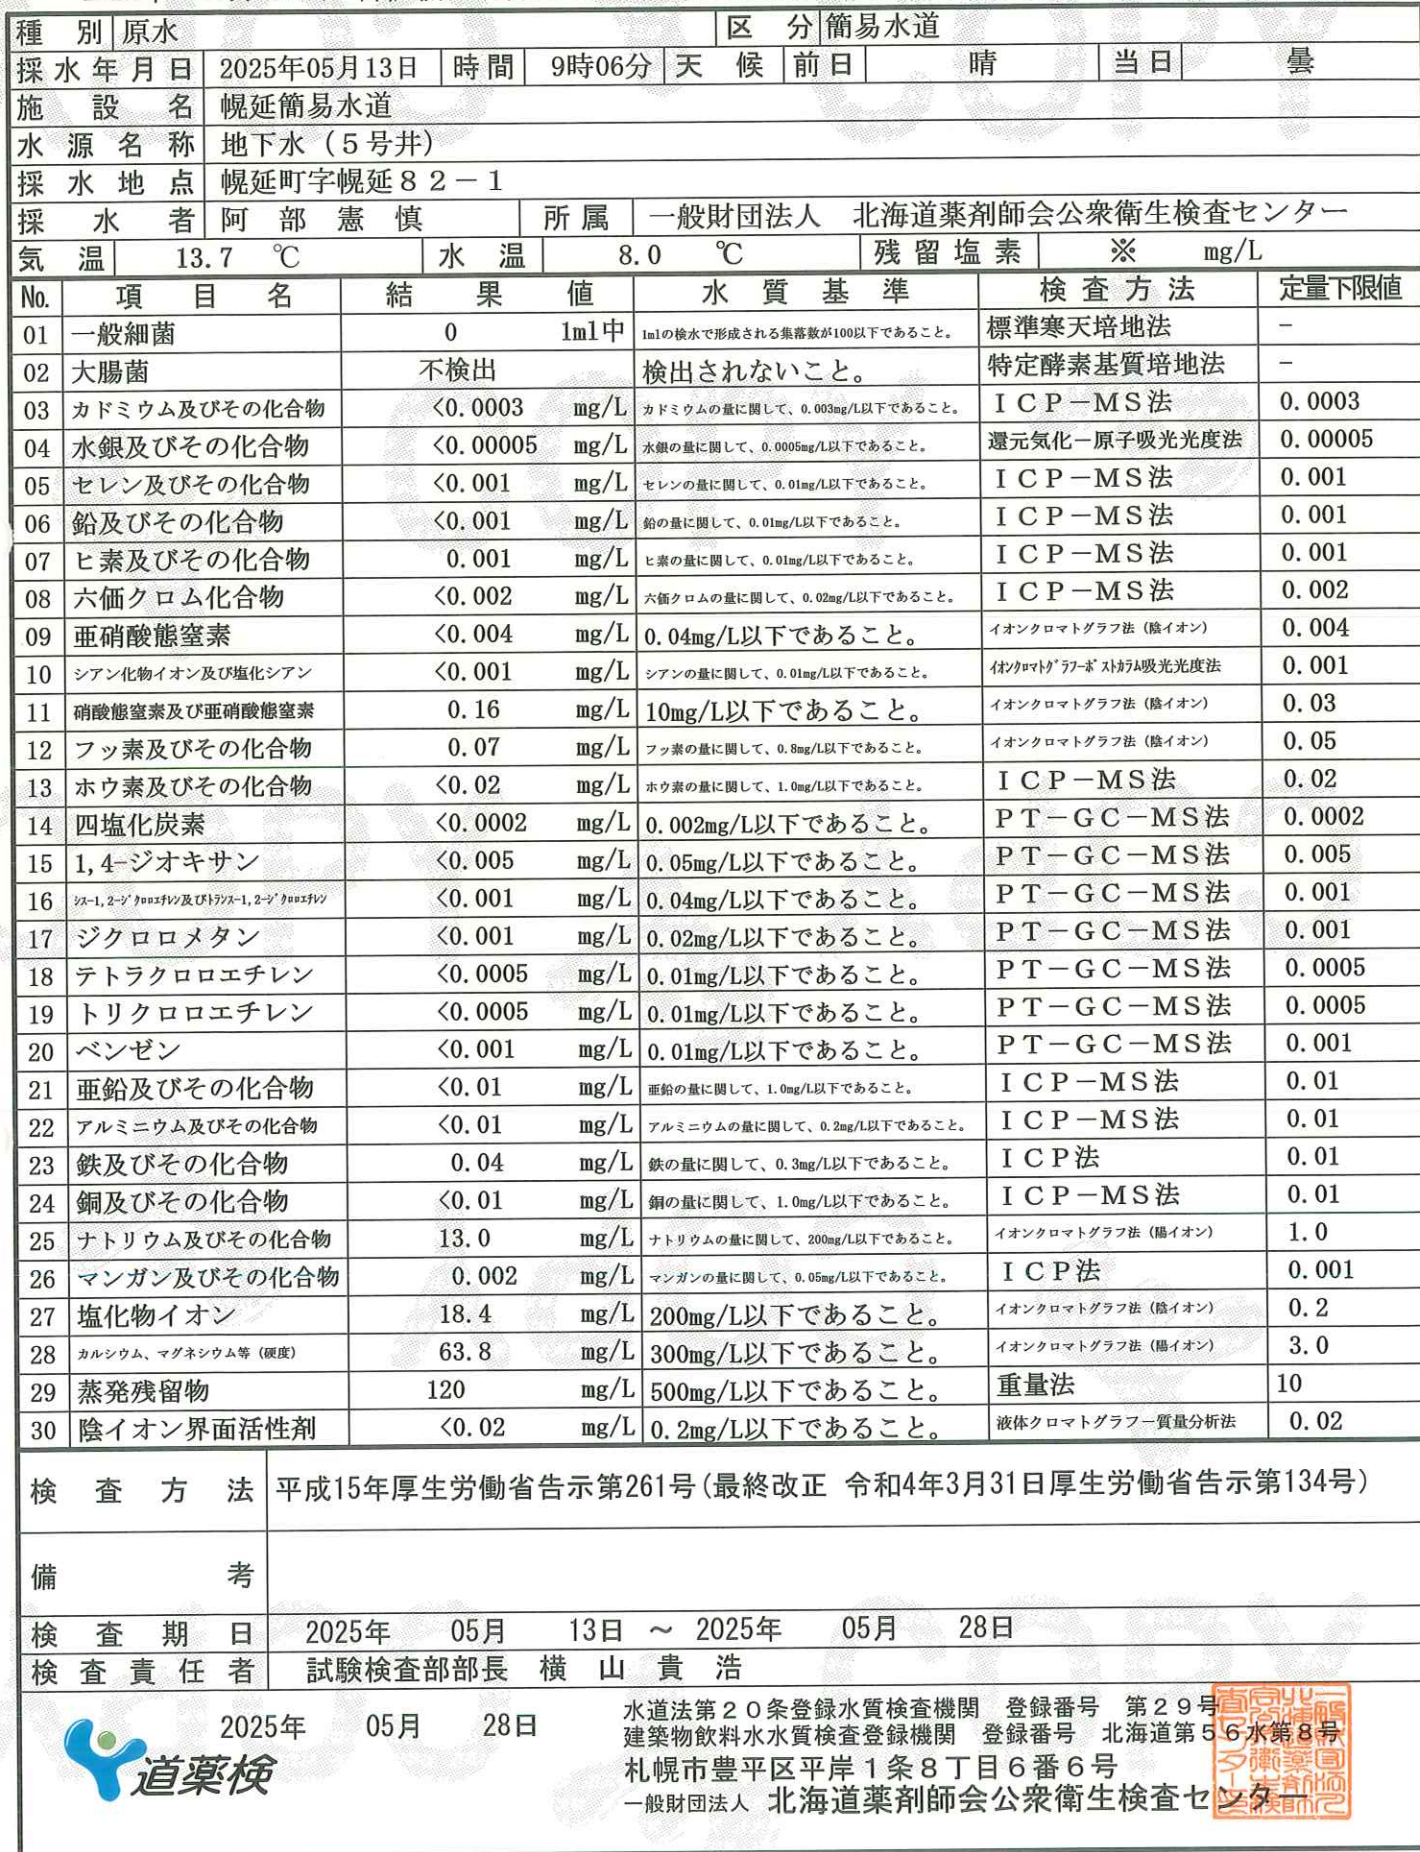 種別 原水 区分 簡易水道
採水年月日 2025年05月13日 時間 9時06分 天候 前日 晴 当日 曇
施設名 幌延簡易水道
水源名称 地下水(5号井)
採水地点 幌延町字幌延82-1
採水者 阿部憲慎 所属 一般財団法人 北海道薬剤師会公衆衛生検査センター
気温 13.7 ℃ 水温 8.0 ℃ 残留塩素 ※ mg/L
No. 項目名 結果値 水質基準 検査方法 定量下限値
01 一般細菌 0 1ml中 1mlの検水で形成される集落数が100以下であること。 標準寒天培地法 -
02 大腸菌 不検出 検出されないこと。 特定酵素基質培地法 -
03 カドミウム及びその化合物 <0.0003 mg/L カドミウムの量に関して、0.003mg/L以下であること。 ICP-MS法 0.0003
04 水銀及びその化合物 <0.00005 mg/L 水銀の量に関して、0.0005mg/L以下であること。 還元気化-原子吸光光度法 0.00005
05 セレン及びその化合物 <0.001 mg/L セレンの量に関して、0.01mg/L以下であること。 ICP-MS法 0.001
06 鉛及びその化合物 <0.001 mg/L 鉛の量に関して、0.01mg/L以下であること。 ICP-MS法 0.001
07 ヒ素及びその化合物 0.001 mg/L ヒ素の量に関して、0.01mg/L以下であること。 ICP-MS法 0.001
08 六価クロム化合物 <0.002 mg/L 六価クロムの量に関して、0.02mg/L以下であること。 ICP-MS法 0.002
09 亜硝酸態窒素 <0.004 mg/L 0.04mg/L以下であること。 イオンクロマトグラフ法(陰イオン) 0.004
10 シアン化物イオン及び塩化シアン <0.001 mg/L シアンの量に関して、0.01mg/L以下であること。 イオンクロマトグラフ-ポストカラム吸光光度法 0.001
11 硝酸態窒素及び亜硝酸態窒素 0.16 mg/L 10mg/L以下であること。 イオンクロマトグラフ法(陰イオン) 0.03
12 フッ素及びその化合物 0.07 mg/L フッ素の量に関して、0.8mg/L以下であること。 イオンクロマトグラフ法(陰イオン) 0.05
13 ホウ素及びその化合物 <0.02 mg/L ホウ素の量に関して、1.0mg/L以下であること。 ICP-MS法 0.02
14 四塩化炭素 <0.0002 mg/L 0.002mg/L以下であること。 PT-GC-MS法 0.0002
15 1,4-ジオキサン <0.005 mg/L 0.05mg/L以下であること。 PT-GC-MS法 0.005
16 シス-1,2-ジクロロエチレン及びトランス-1,2-ジクロロエチレン <0.001 mg/L 0.04mg/L以下であること。 PT-GC-MS法 0.001
17 ジクロロメタン <0.001 mg/L 0.02mg/L以下であること。 PT-GC-MS法 0.001
18 テトラクロロエチレン <0.0005 mg/L 0.01mg/L以下であること。 PT-GC-MS法 0.0005
19 トリクロロエチレン <0.0005 mg/L 0.01mg/L以下であること。 PT-GC-MS法 0.0005
20 ベンゼン <0.001 mg/L 0.01mg/L以下であること。 PT-GC-MS法 0.001
21 亜鉛及びその化合物 <0.01 mg/L 亜鉛の量に関して、1.0mg/L以下であること。 ICP-MS法 0.01
22 アルミニウム及びその化合物 <0.01 mg/L アルミニウムの量に関して、0.2mg/L以下であること。 ICP-MS法 0.01
23 鉄及びその化合物 0.04 mg/L 鉄の量に関して、0.3mg/L以下であること。 ICP法 0.01
24 銅及びその化合物 <0.01 mg/L 銅の量に関して、1.0mg/L以下であること。 ICP-MS法 0.01
25 ナトリウム及びその化合物 13.0 mg/L ナトリウムの量に関して、200mg/L以下であること。 イオンクロマトグラフ法(陽イオン) 1.0
26 マンガン及びその化合物 0.002 mg/L マンガンの量に関して、0.05mg/L以下であること。 ICP法 0.001
27 塩化物イオン 18.4 mg/L 200mg/L以下であること。 イオンクロマトグラフ法(陰イオン) 0.2
28 カルシウム、マグネシウム等(硬度) 63.8 mg/L 300mg/L以下であること。 イオンクロマトグラフ法(陽イオン) 3.0
29 蒸発残留物 120 mg/L 500mg/L以下であること。 重量法 10
30 陰イオン界面活性剤 <0.02 mg/L 0.2mg/L以下であること。 液体クロマトグラフ-質量分析法 0.02
検査方法 平成15年厚生労働省告示第261号(最終改正 令和4年3月31日厚生労働省告示第134号)
備考
検査期日 2025年 05月 13日 ~ 2025年 05月 28日
検査責任者 試験検査部部長 横山貴浩
2025年 05月 28日
道薬検
水道法第20条登録水質検査機関 登録番号 第29号
建築物飲料水水質検査登録機関 登録番号 北海道第56水第8号
札幌市豊平区平岸1条8丁目6番6号
一般財団法人 北海道薬剤師会公衆衛生検査センター